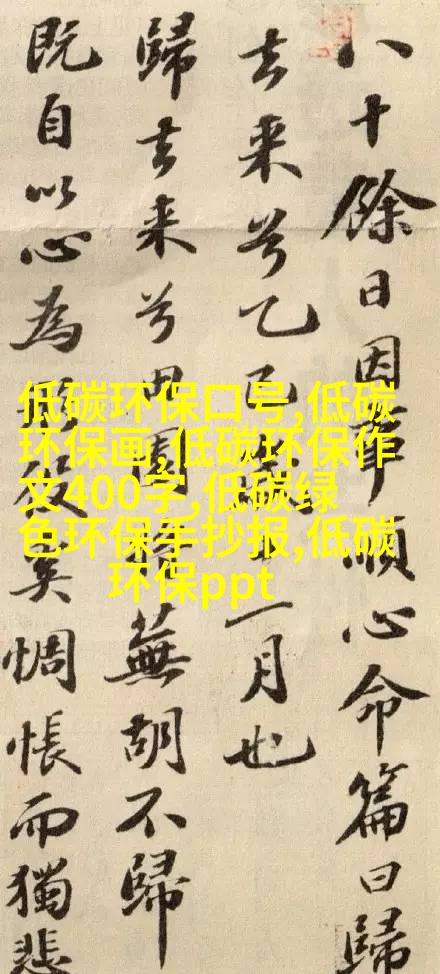 八十餘日因事順心命篇曰歸
去来兮乙巳一月也
歸去来兮田園蕪胡不歸
既自以心為役奚惆悵而獨悲
低碳环保口号,低碳
环保画,低碳环保作
文400字,低碳绿
色环保手抄报,低碳
环保ppt